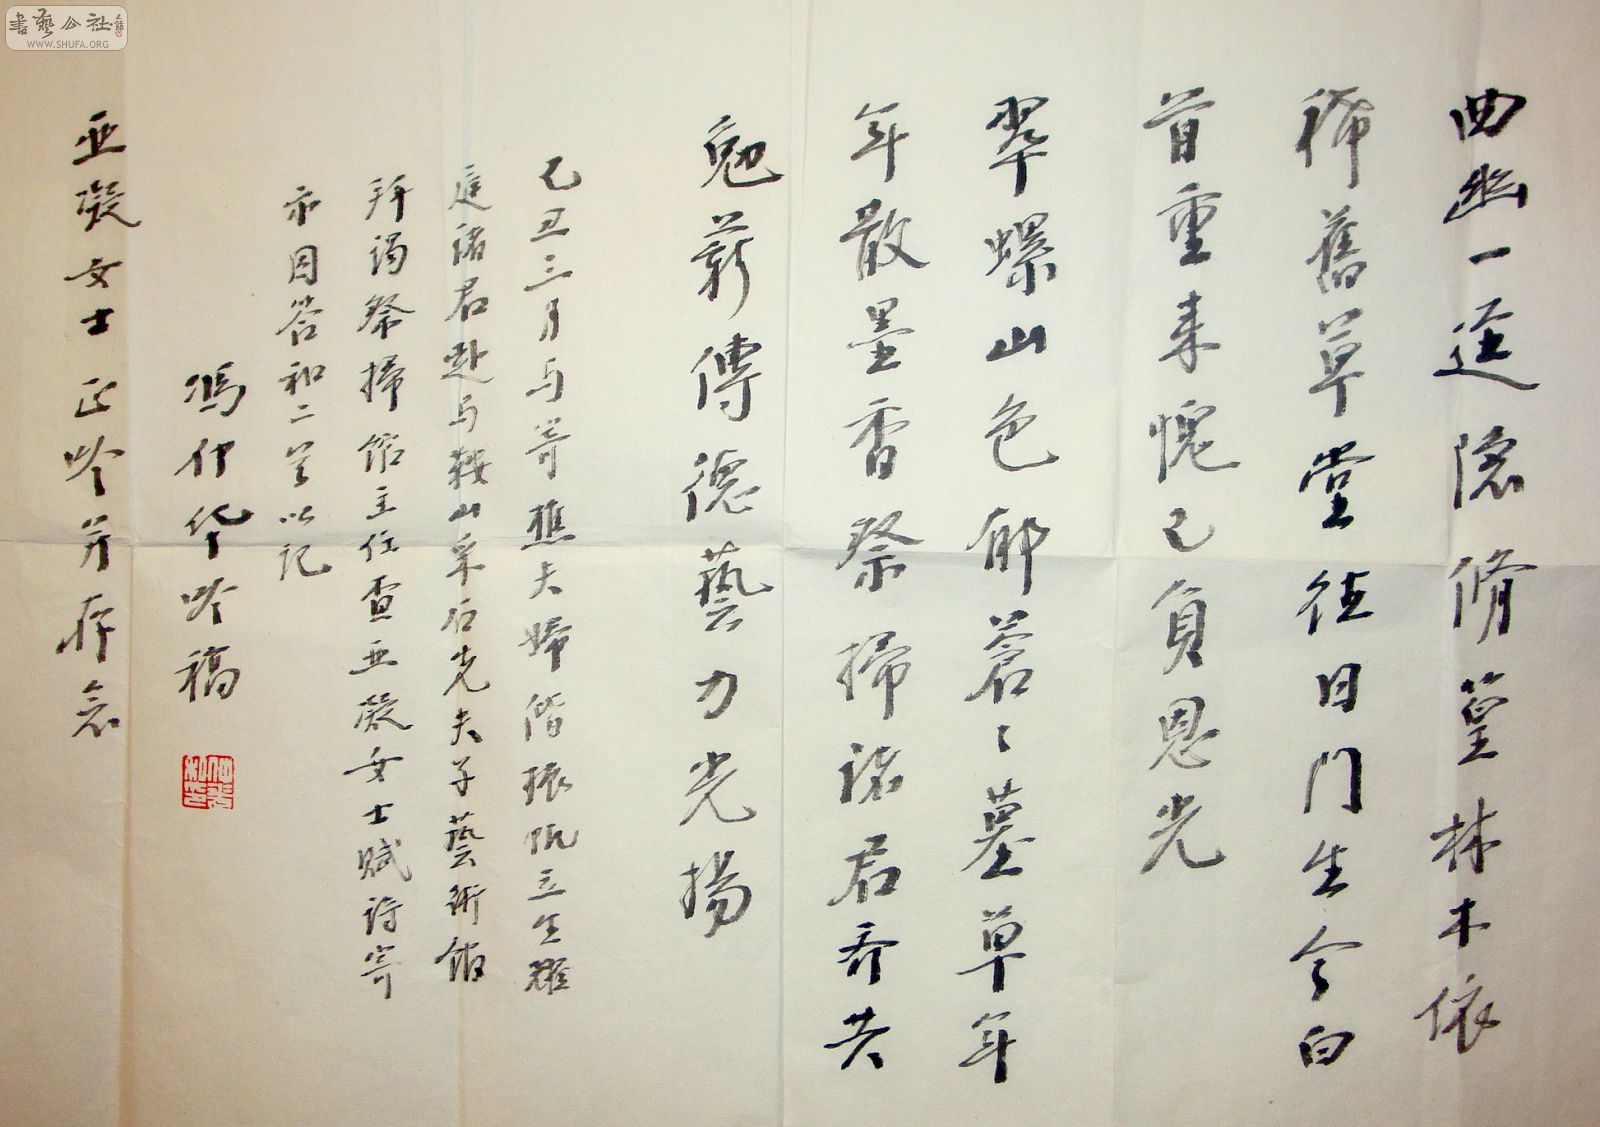 曲幽一逕隱脩篁林木依
稀舊草堂徒日門生今白
首重来愧已負恩光
翠螺山色郁蒼〻墓草年
年散墨香祭掃諸君齐共
勉薪傳德藝力光揚
己丑三月与莽樵夫婦偕振阮立生耀
庭諸君赴马鞍山采石先夫子藝術館
拜謁祭掃館主任查亚凝女士赋诗寄
示因答和二首以记
馮仲华吟稿
亚凝女士正吟并存念
書藝公社
WWW.SHUFA.ORG